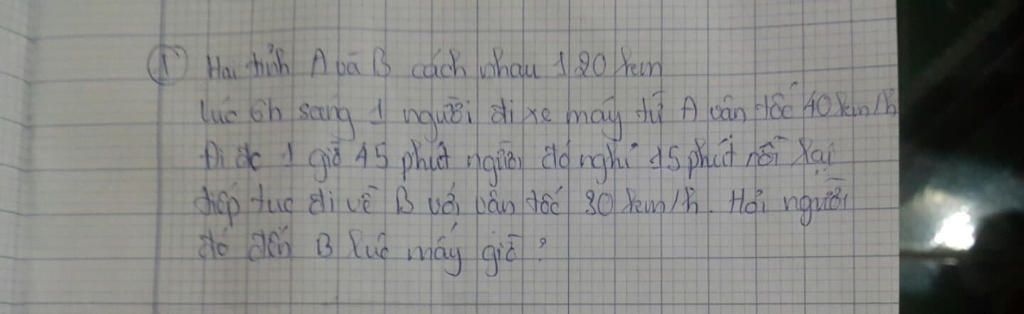 ① Hai tỉnh A và B cách nhau 120 km
lúc 6h sáng 1 người đi xe máy từ A vận tốc 40 km/h
Đi đc 1 giờ 45 phút người đó nghỉ 15 phút rồi lại
tiếp tục đi về B với vận tốc 30 km/h. Hỏi người
đó đến B lúc mấy giờ?